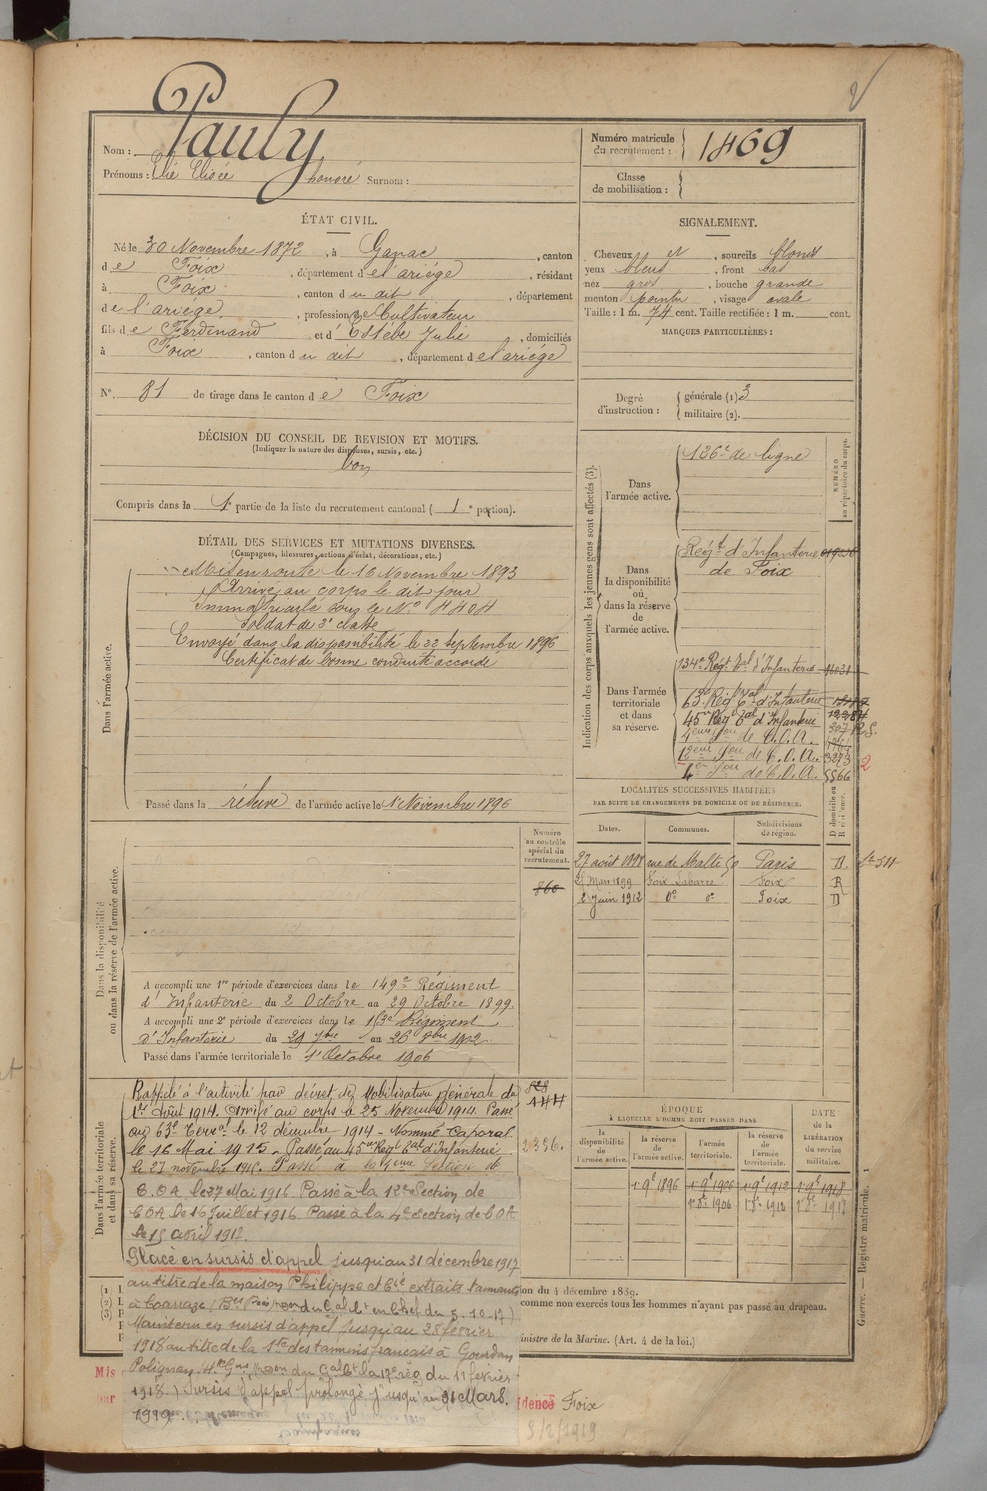 Nom : Pauly
Prénoms : Elié Elisée honoré Surnom :
Numéro matricule du recrutement : 1469
Classe de mobilisation :
ÉTAT CIVIL.
Né le 30 Novembre 1872, à Ganac, canton
de Foix, département de l'ariége, résidant
à Foix, canton du dit, département
de l'ariége, profession de Cultivateur
fils de Ferdinand et d'Estèbe Julie, domiciliés
à Foix, canton du dit, département de l'ariége
N° 81 de tirage dans le canton de Foix
SIGNALEMENT.
Cheveux et, sourcils blonds
yeux bleus, front bas
nez gros, bouche grande
menton pointu, visage ovale
Taille : 1 m. 74 cent. Taille rectifiée : 1 m. cent.
MARQUES PARTICULIÈRES :
Degré d'instruction : générale (1) 3
militaire (2).
DÉCISION DU CONSEIL DE REVISION ET MOTIFS.
(Indiquer la nature des dispenses, sursis, etc.)
bon
Compris dans la 1e partie de la liste du recrutement cantonal ( 1e portion).
DÉTAIL DES SERVICES ET MUTATIONS DIVERSES.
(Campagnes, blessures, actions d'éclat, décorations, etc.)
Dans l'armée active.
Mis en route le 16 Novembre 1893
Arrivé au corps le dit jour
Immatriculé sous le No 4404
Soldat de 2e classe
Envoyé dans la disponibilité le 22 septembre 1896
Certificat de bonne conduite accordé
Passé dans la réserve de l'armée active le 1 Novembre 1896
Indication des corps auxquels les jeunes gens sont affectés (3).
NUMÉRO au répertoire du corps.
Dans l'armée active.
126e de ligne
Dans la disponibilité ou dans la réserve de l'armée active.
Régt d'Infanterie
de Foix
Dans l'armée territoriale et dans sa réserve.
134e Régt tal d'Infanterie
63e Régt tal d'Infanterie
45me Régt tal d'Infanterie
de C.O.A.
12eme Son de C.O.A. 3273
4e Son de C.O.A. 5566
LOCALITÉS SUCCESSIVES HABITÉES
PAR SUITE DE CHANGEMENTS DE DOMICILE OU DE RÉSIDENCE.
Dates. Communes. Subdivisions de région. D domicile ou R résidence.
27 août rue de Malte Paris D
Mars 1899 Foix Labarre Foix R
2 Juin 1912 do do Foix D
Numéro au contrôle spécial du recrutement.
860
Dans la disponibilité ou dans la réserve de l'armée active.
A accompli une 1re période d'exercices dans le 149e Régiment
d'Infanterie du 2 Octobre au 29 Octobre 1899.
A accompli une 2e période d'exercices dans le Régiment
d'Infanterie du 29 7bre au 26 8bre 1902.
Passé dans l'armée territoriale le 1e Octobre 1906
Dans l'armée territoriale et dans sa réserve.
Rappelé à l'activité par décret de Mobilisation générale du
1er Août 1914. Arrivé au corps le 25 Novembre 1914. Passé
au 63e Terral le 12 décembre 1914 - Nommé Caporal
le 16 Mai 1915 - Passé au 45me Régt tal d'Infanterie
le 27 novembre 1915. Passé à la Section de
C.O.A. le 27 Mai 1916 Passé à la 12e Section de
COA le 16 Juillet 1916. Passé à la 4e Section de COA
le 15 avril 1917.
Placé en sursis d'appel jusqu'au 31 décembre 1917
au titre de la maison Philippe et Cie extraits tannants
à Coarraze
Maintenu en sursis d'appel jusqu'au 28 février
1918 au titre de la Sté des tannins français à Gourdan
Polignan du 11 février
1918. ) Sursis d'appel prolongé jusqu'au 31 Mars
1919.
ÉPOQUE
À LAQUELLE L'HOMME DOIT PASSER DANS
DATE de la LIBÉRATION du service militaire.
la disponibilité de l'armée active. la réserve de l'armée active. l'armée territoriale. la réserve de l'armée territoriale.
1896 1906 1912 1918
1906 1912 1918
on du 4 décembre 1889.
comme non exercés tous les hommes n'ayant pas passé au drapeau.
inistre de la Marine. (Art. 4 de la loi.)
Guerre. — Registre matricule. 1
Mis
par
idence Foix